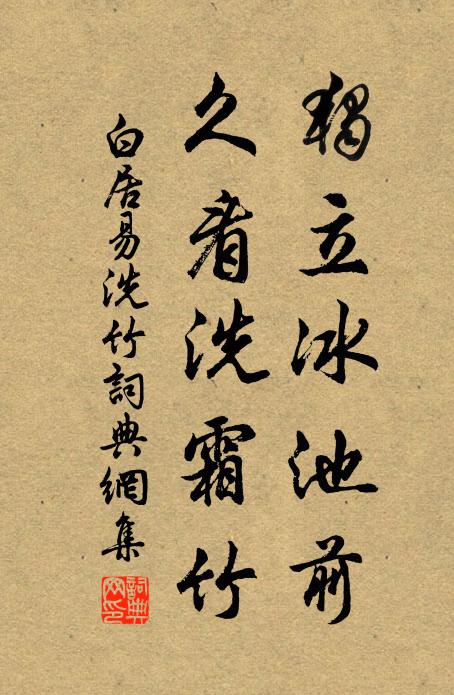 獨立冰池前
久看洗霜竹
白居易洗竹詞典網集
詞典網印